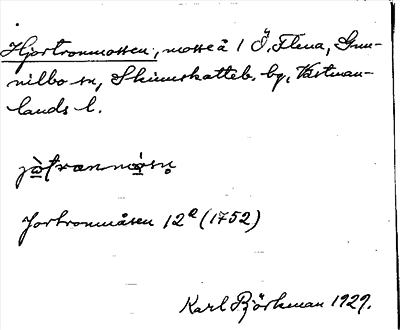 Hjortronmossen, mosse å 1 Ö. Flena, Gun-
nilbo sn, Skinnskatteb. bg, Västman-
lands l.
Jortronmåsen 12a (1752)
Karl Björkman 1929.